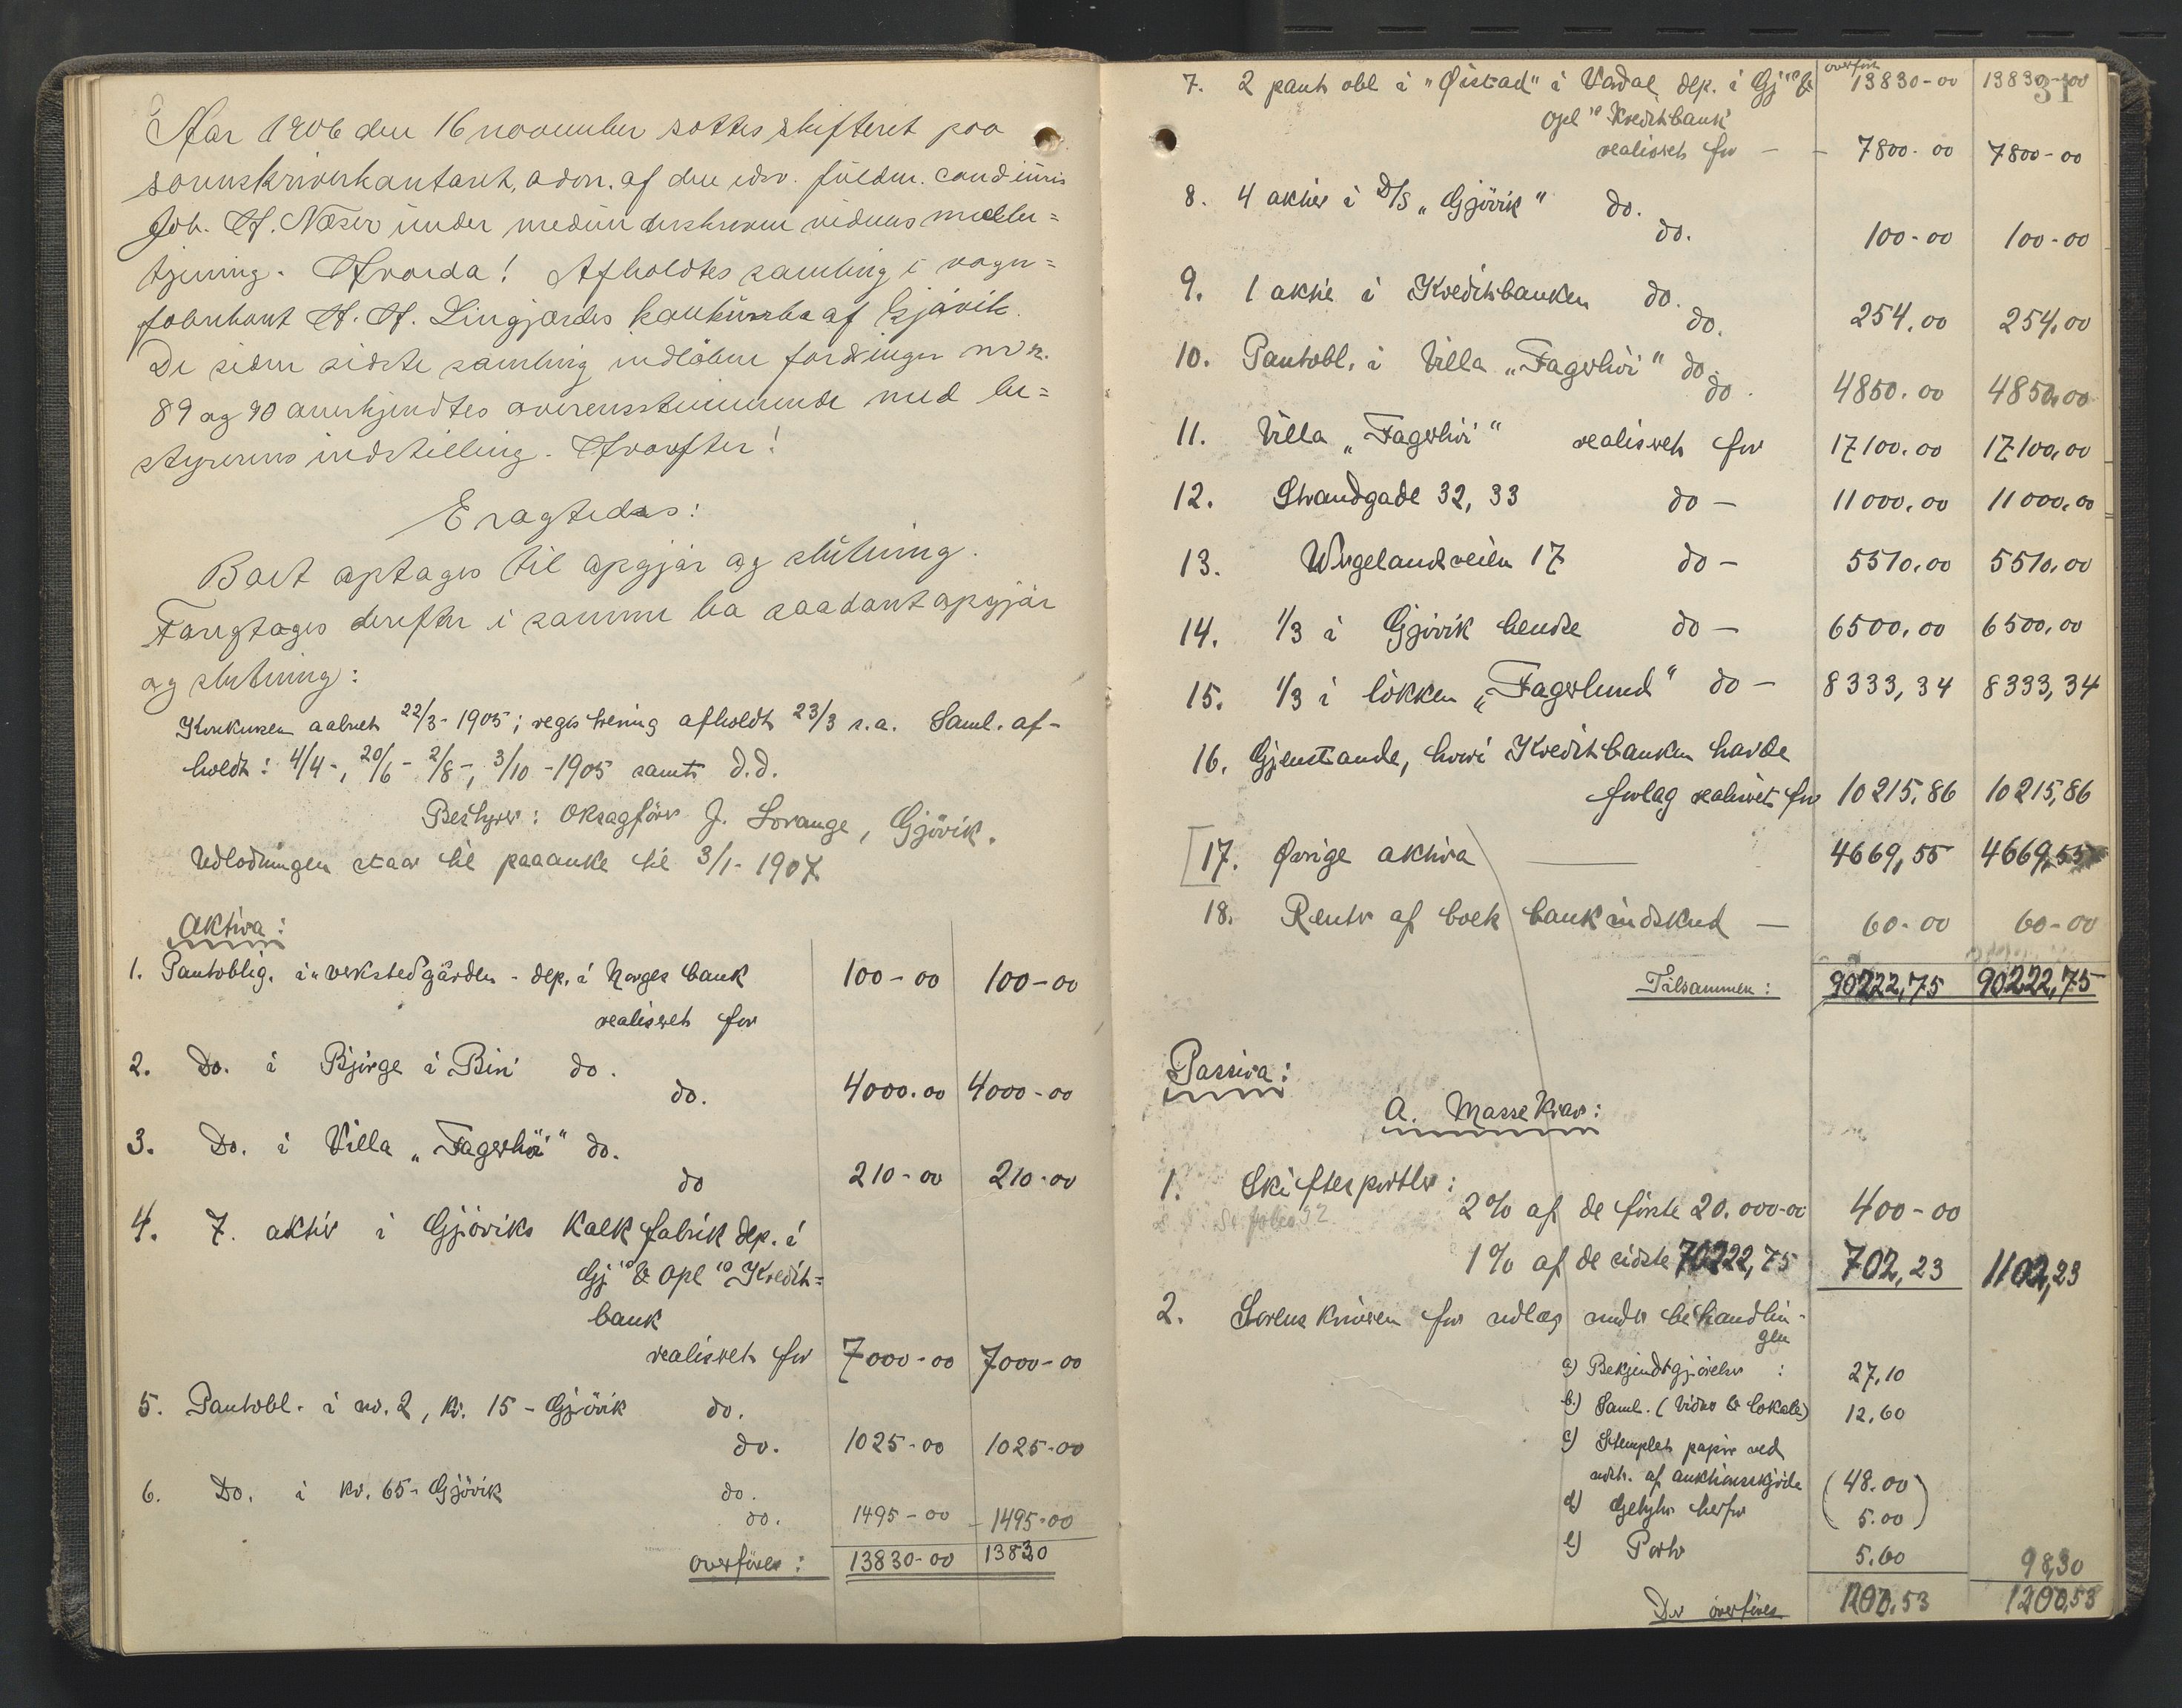 Aar 1906 den 16 november sattes skifteret paa
sorenskriverkontoret, adm. af den edsv. fuldm. cand juris
Joh. H. Næser under medunderskrevne vidners medbe=
tjening. Hvorda! Afholdtes samling i vogn=
fabrikant H. H. Lingjærdes konkursbo af Gjøvik.
De siden sidste samling indløbne fordringer no n.
89 og 90 anerkjendtes overensstemmende med be=
styrerens indstilling. Hvorefter!
Eragtedes:
Boet optages til opgjør og slutning.
Foregtoges derefter i samme bo saadant opgjør
og slutning:
Konkursen aabnet 22/3-1905; registrering afholdt 23/3 s.a. Saml. af-
holdt: 4/4-, 20/6- 2/8-, 3/10-1905 samt d.d.
Bestyrer: Oksagfører J. Lorange, Gjøvik.
Udlodningen staar til paaanke til 3/1-1907.
Aktiva:
1. Pantoblig. i "verkstedgården - dep. i Norges bank 100-00 100-00
realiseret for
2. Do. i Bjørge i Biri do.
do. 4000.00 4000-00
3. Do. i Villa „Fagerhøi" do.
do 210-00 210-00
4. 7. aktier i Gjøviks Kalkfabrik dep. i
Gj" & Opl" Kredit=
bank
realiseret for 7000-00 7000-00
5. Pantobl. i no. 2, kv. 15 - Gjøvik do.
do. 1025-00 1025-00
6. Do. i kv. 65 - Gjøvik do.
do. 1495-00 1495-00
overføres: 13830-00 13830
31
overført
7. 2 pant obl i „Øistad" i Vardal dep. i Gj" & 13830-00 13830-00
Opl" Kreditbank
realiseret for - - 7800.00 7800-00
8. 4 aktier i D/S „Gjøvik" do.
do. 100-00 100-00
9. 1 aktie i Kreditbanken do.
do. 254.00 254,00
10. Pantobl. i Villa „Fagerhøi" do.
do. 4850.00 4850,00
11. Villa „Fagerhøi" realiseret for 17100.00 17100,00
12. Strandgade 32, 33 do - 11000.00 11000,00
13. Wergelandsveien 17 do - 5510.00 5510,00
14. 1/3 i Gjøvik hendse do - 6500.00 6500,00
15. 1/3 i løkken „Fagerlund" do - 8333,34 8333,34
16. Gjenstande, hvori Kreditbanken havde
forlag realiseret for 10215.86 10215,86
17. Øvrige aktiva 4669,55 4669,55
18. Renter af boets bankindskud - 60.00 60-00
Tilsammen: 90222,75 90222,75
Passiva:
A. Massekrav:
1. Skiftesportler:
2% af de første 20.000-00 400-00
1% af de sidste 70222,75 702,23 1102,23
2. Sorenskriveren for udlæg under behandlin-
gen
a) Bekjendtgjørelser : 27,10
b) Saml. (vidner & lokale) 12.60
c) Stemplet papir ved
udst. af auktionsskjøde (48.00)
d) Gebyhr herfor (5.00)
e) Porto 5.60 98,30
Der overføres 1200.53 1200,53